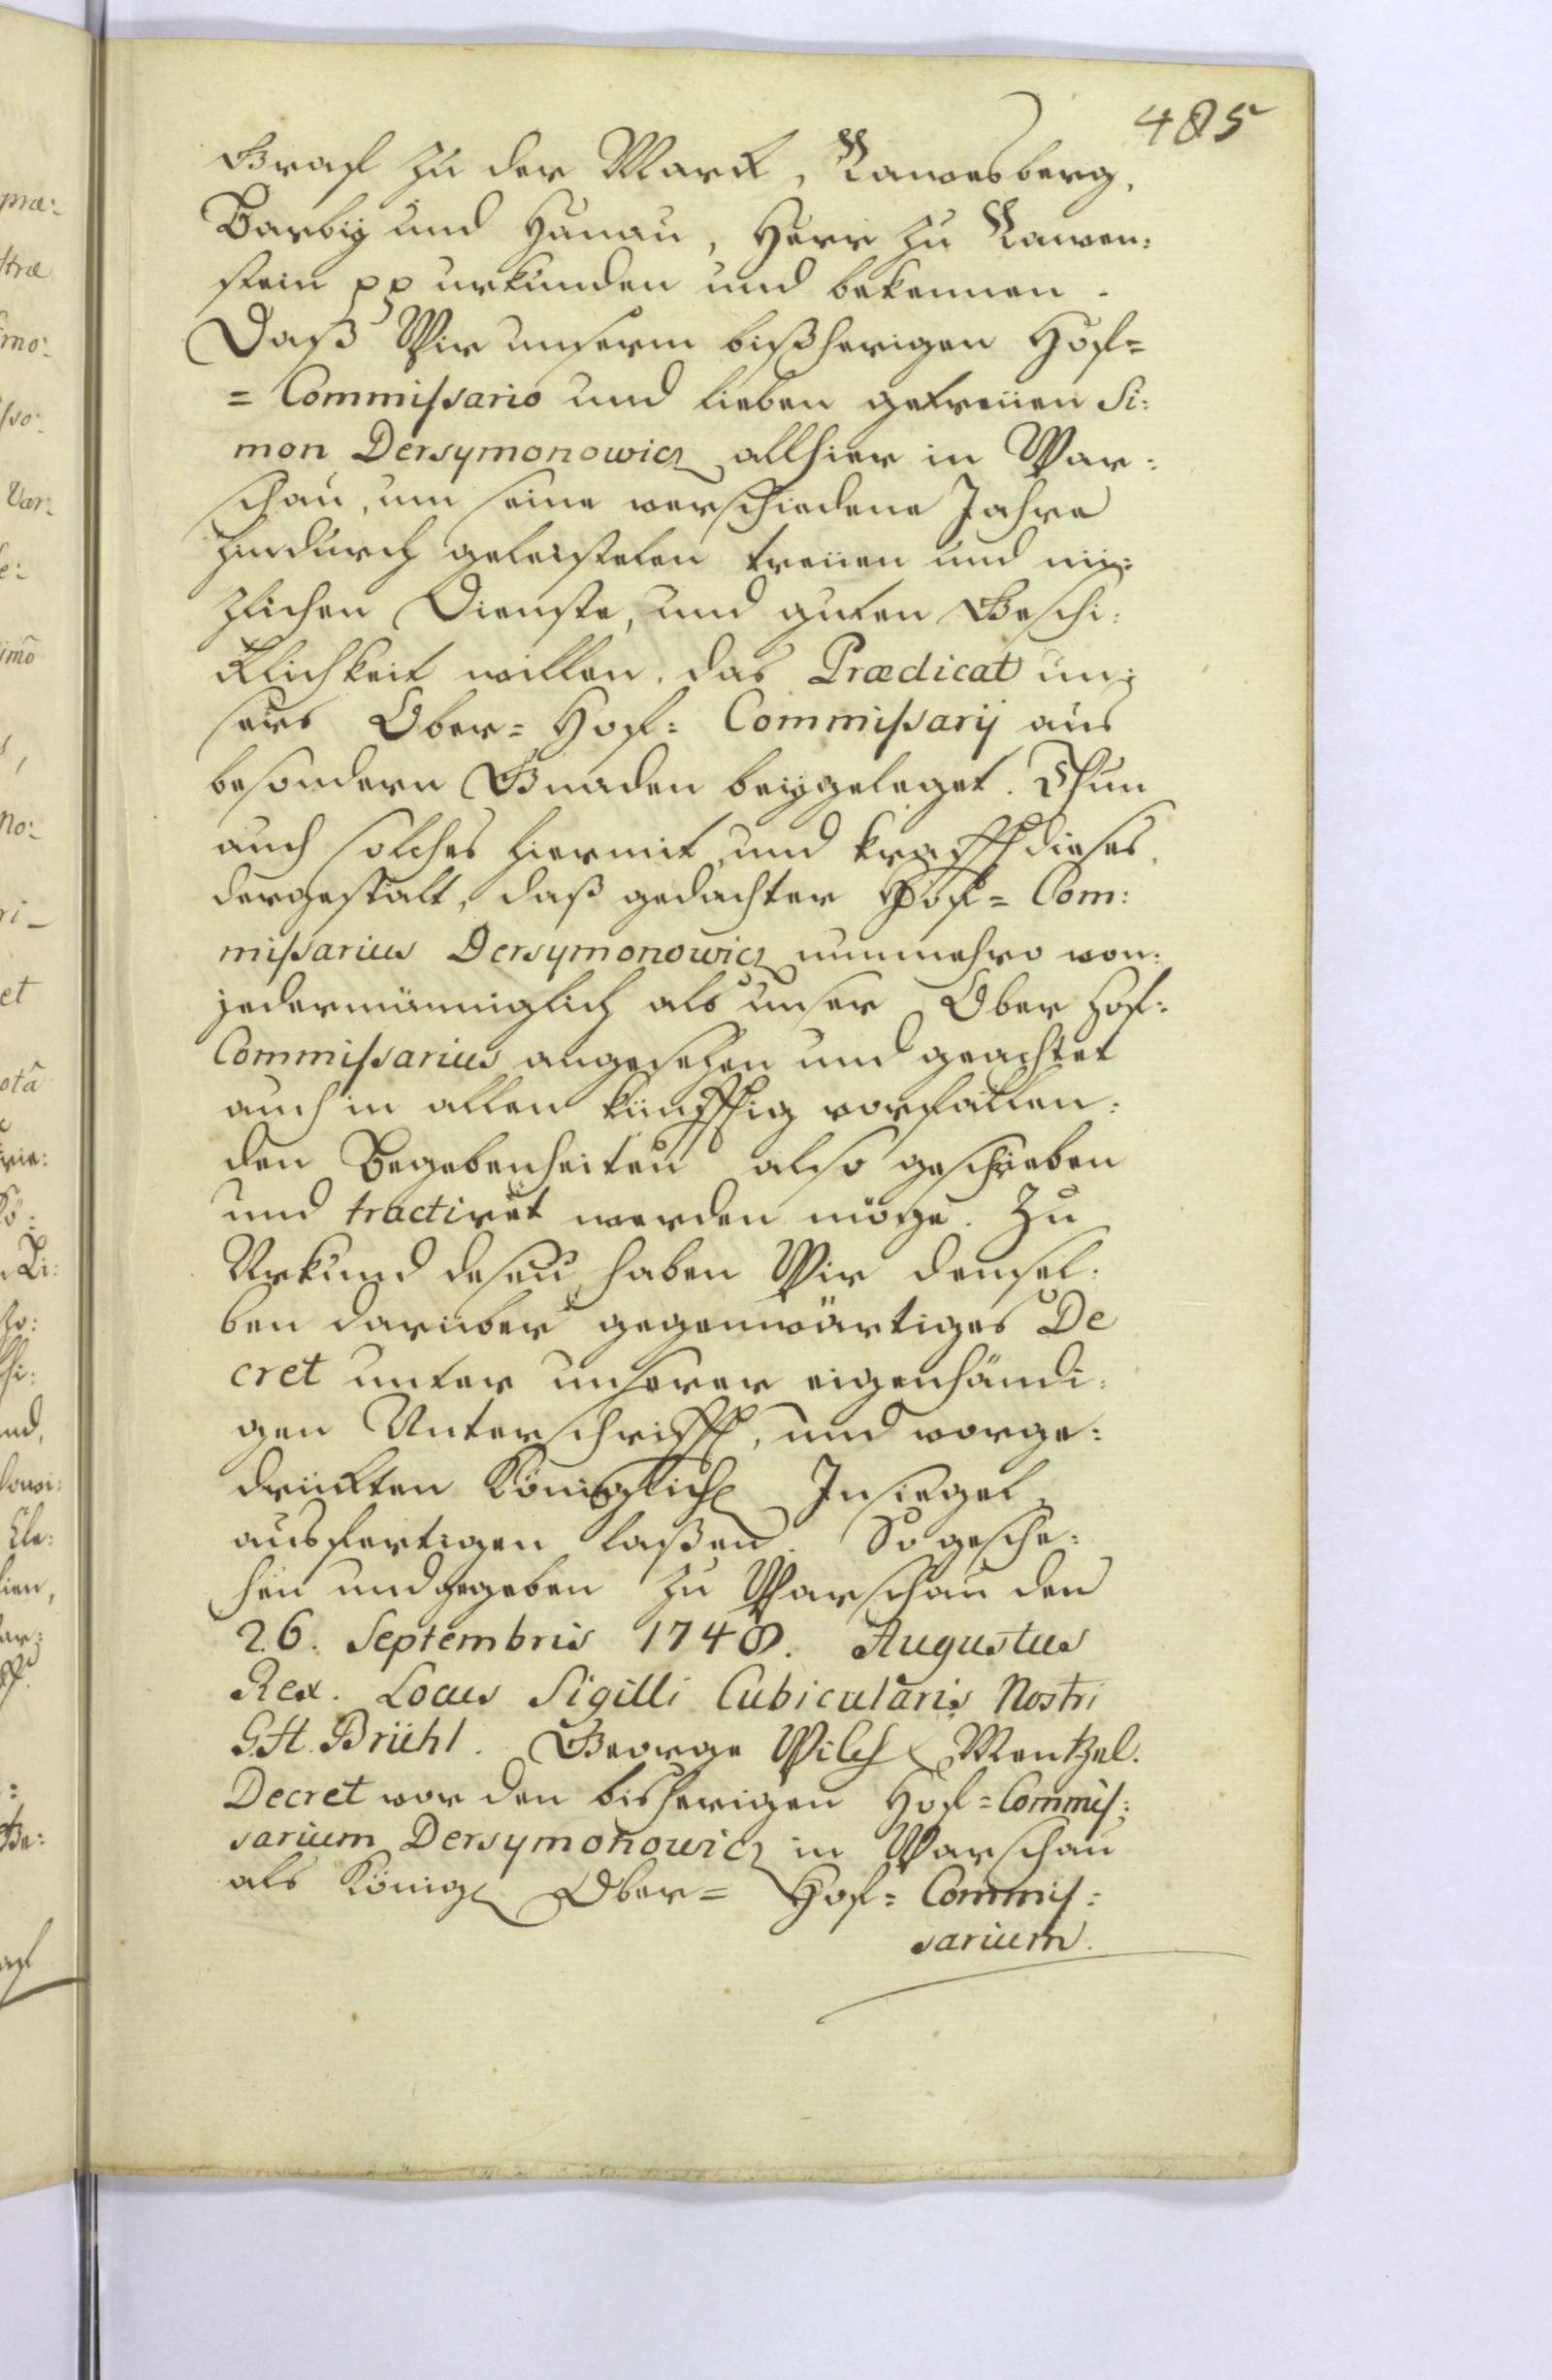 485
Graf zu der Marck, Rawesberg,
Barbÿ und Hanau, Herr zu Rawen:
stein pp urkunden und bekennen.
Daß Wir unserm bißherigen Hof=
= Commissario und lieben getreüen Si:
mon Dersymonowicz allhier in War:
schau, um seine verschiedene Jahre
hindurch geleisteten treüen und nü:
zlichen Dienste, und guten Geschi:
cklichkeit willen, das Prædicat un:
sers Ober= Hof: Commissarij aus
besondern Gnaden beÿgeleget. Thun
auch solches hiermit und krafft dieses,
dergestalt, daß gedachter Hof= Com:
missarius Dersymonowicz nunmehro von
jedermänniglich als unser Ober Hof:
Commissarius angesehen und geachtet
auch in allen künfftig vorfallen:
den Begebenheiten also geschrieben
und tractiret werden möge. Zu
Urkund deßen haben Wir demsel:
ben darüber gegenwärtiges De
cret unter unserer eigenhändi:
gen Unterschrifft, und vorge:
druckten Königlich Insiegel
ausfertigen laßen. So gesche:
hen und gegeben zu Warschau den
26. Septembris 1748. Augustus
Rex. Locus Sigilli Cubicularis Nostri
G. H. Brühl. George Wilh Mentzel.
Decret vor den bisherigen Hof=Commis:
sarium Dersymonowicz in Warschau
als Königl Ober= Hof: Commis:
sarium.